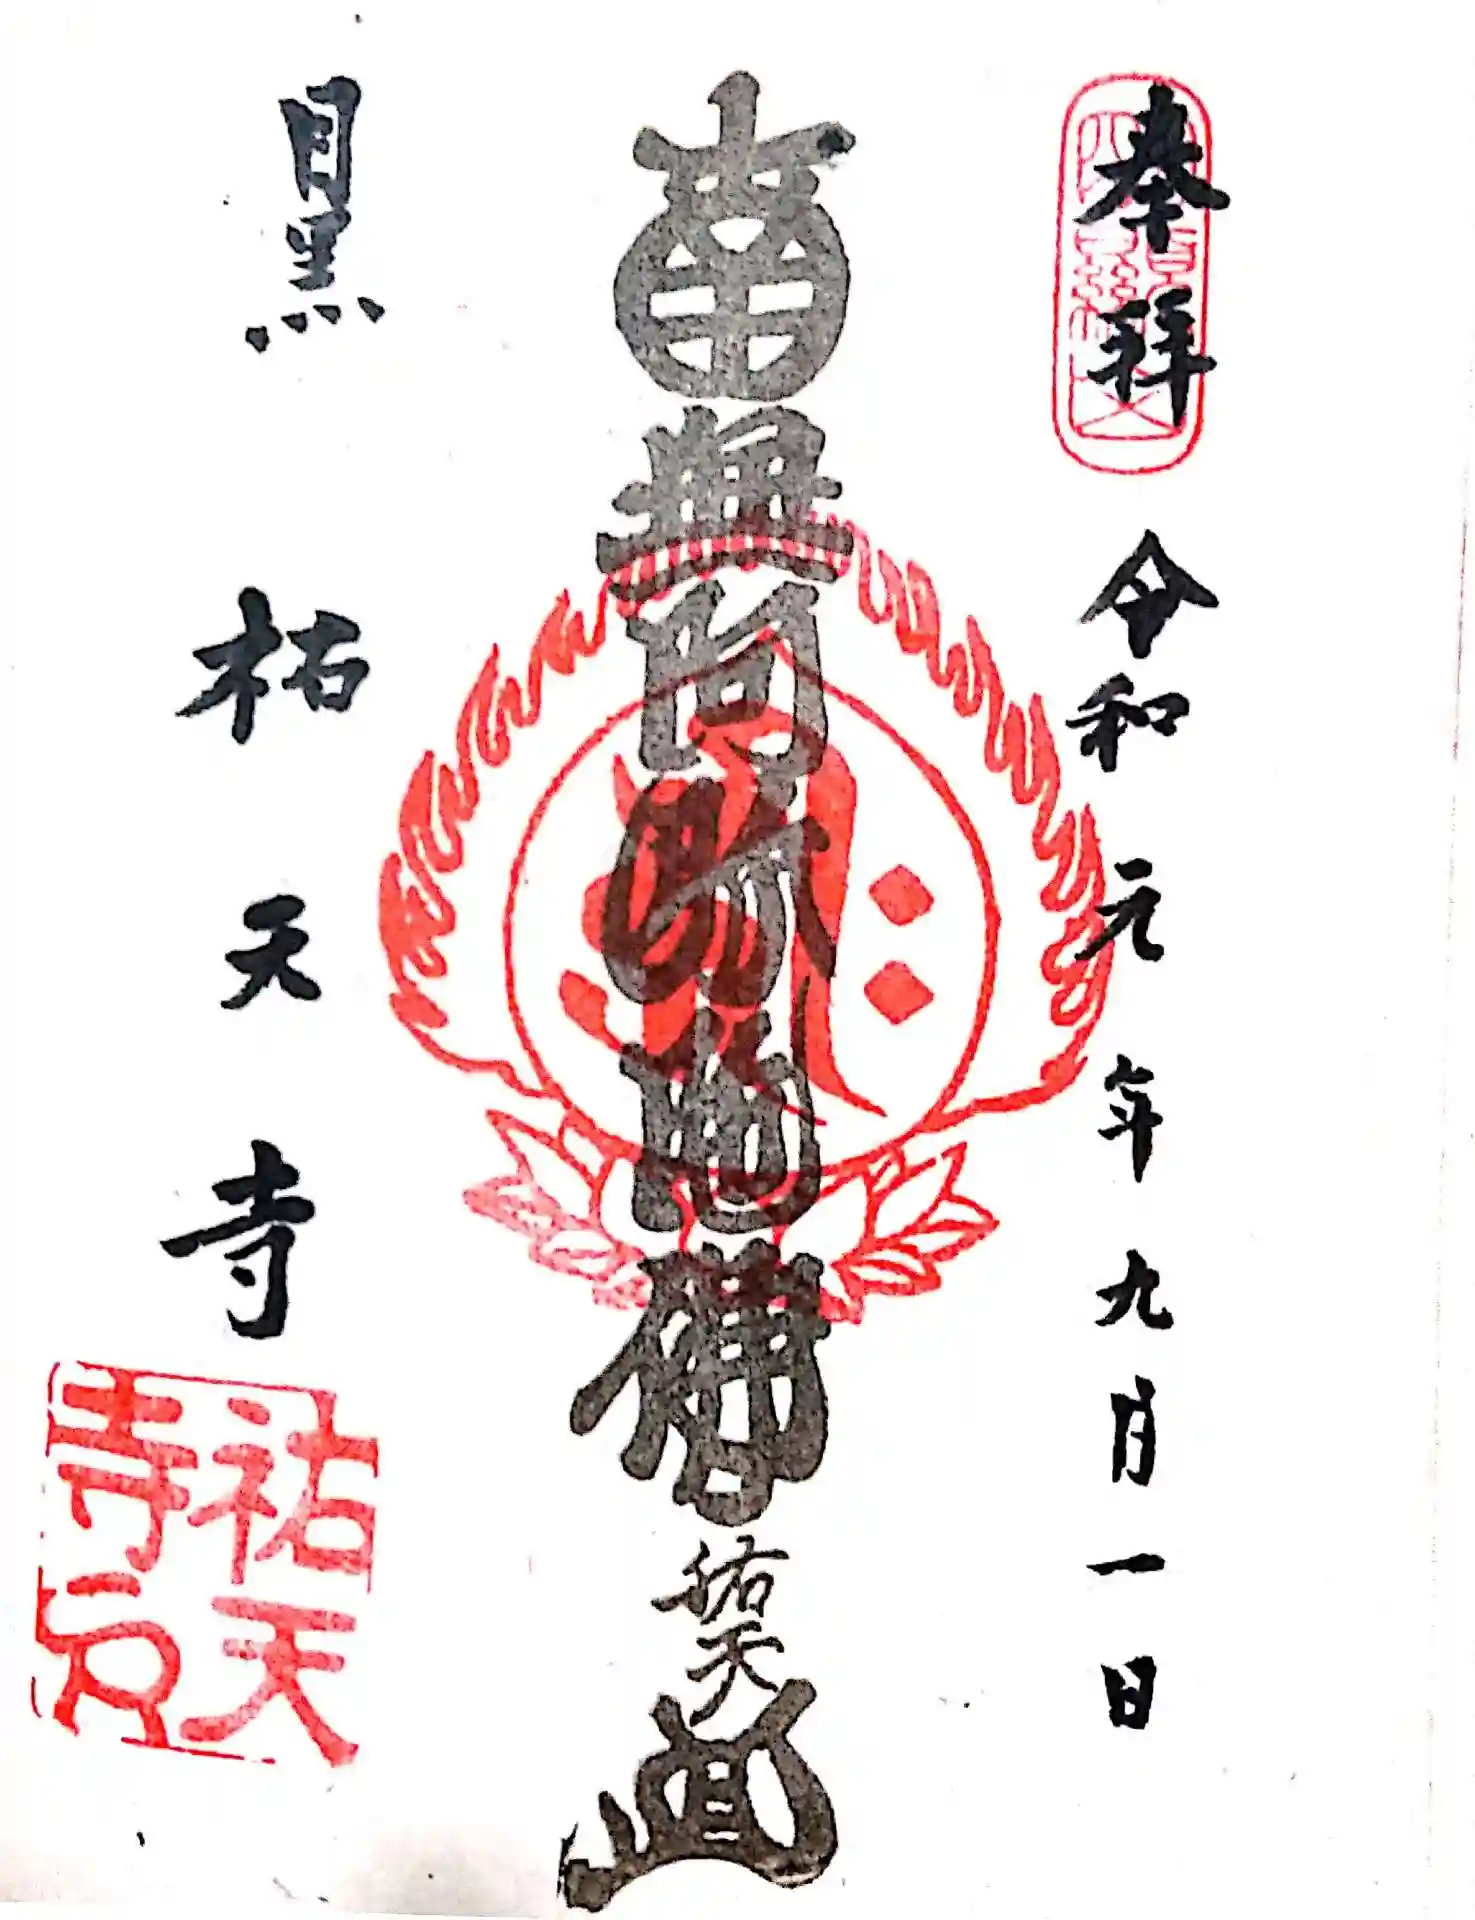 奉拝
令和元年九月一日
南無阿弥陀佛
祐天
目黒
祐天寺
祐天
寺印